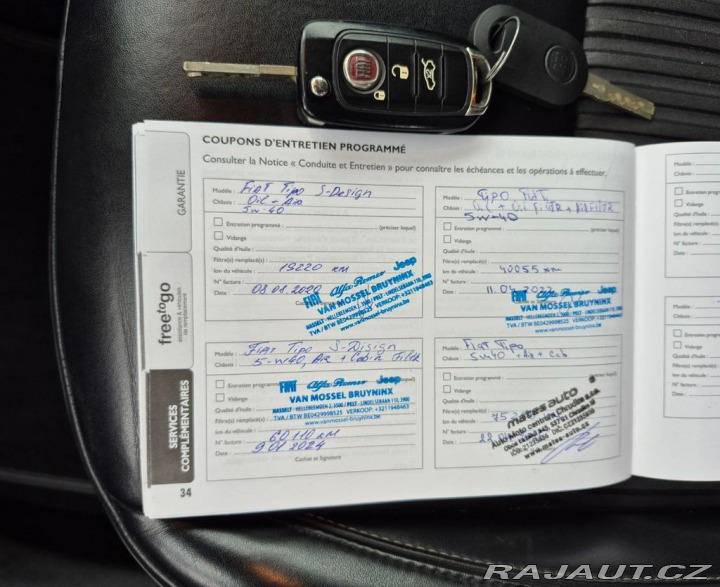 FIAT
COUPONS D'ENTRETIEN PROGRAMMÉ
Consulter la Notice « Conduite et Entretien » pour connaître les échéances et les opérations à effectuer.
GARANTIE
free to go
assistance & véhicules
de remplacement
SERVICES
COMPLÉMENTAIRES
Modèle : FIAT Tipo S-Design
Châssis : Oil + Air
5W-40
Entretien programmé : (préciser lequel)
Vidange
Qualité d'huile :
Filtre(s) remplacé(s) :
km du véhicule : 19220 km
N° facture :
Date : 08.01.2020
FIAT Alfa Romeo Jeep
VAN MOSSEL BRUYNINX
TVA / BTW BE0429998525 VERKOOP: +3211948463
www.vanmossel-bruyninx.be
Modèle : TIPO FIAT
Châssis :
5W-40
Entretien programmé : (préciser lequel)
Vidange
Qualité d'huile :
Filtre(s) remplacé(s) :
km du véhicule : 40055 km
N° facture :
Date : 11.04.2022
FIAT Alfa Romeo Jeep
VAN MOSSEL BRUYNINX
TVA / BTW BE0429998525 VERKOOP: +3211948463
www.vanmossel-bruyninx.be
Modèle : FIAT Tipo S-Design
Châssis : 5-W40, Air + Cabin Filter
Entretien programmé
Vidange
Qualité d'huile :
Filtre(s) remplacé(s) :
km du véhicule :
N° facture : 60110 km
Date : 9.01.2024
Cachet et Signature
FIAT Alfa Romeo Jeep
VAN MOSSEL BRUYNINX
TVA / BTW BE0429998525 VERKOOP: +3211948463
www.vanmossel-bruyninx.be
Modèle : Fiat Tipo
Châssis : 5W40 + Air + Cab
Entretien programmé :
Vidange
Qualité d'huile :
Filtre(s) remplacé(s) :
km du véhicule :
N° facture :
Date :
mates auto
www.mates-auto.cz
Modèle :
Châssis :
Entretien
Vidange
Qualité d'huile :
Filtre(s) remplacé(s)
km du véhicule :
N° facture :
Date :
Modèle :
Châssis :
Entretien
Vidange
Qualité d'huile :
Filtre(s) remplacé
km du véhicule :
N° facture :
Date :
34
RAJAUT.CZ